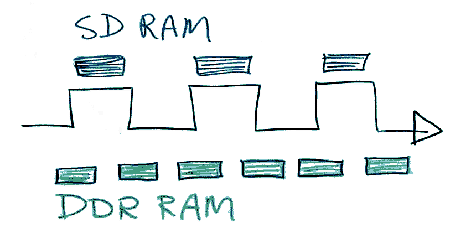 SD RAM
DDR RAM